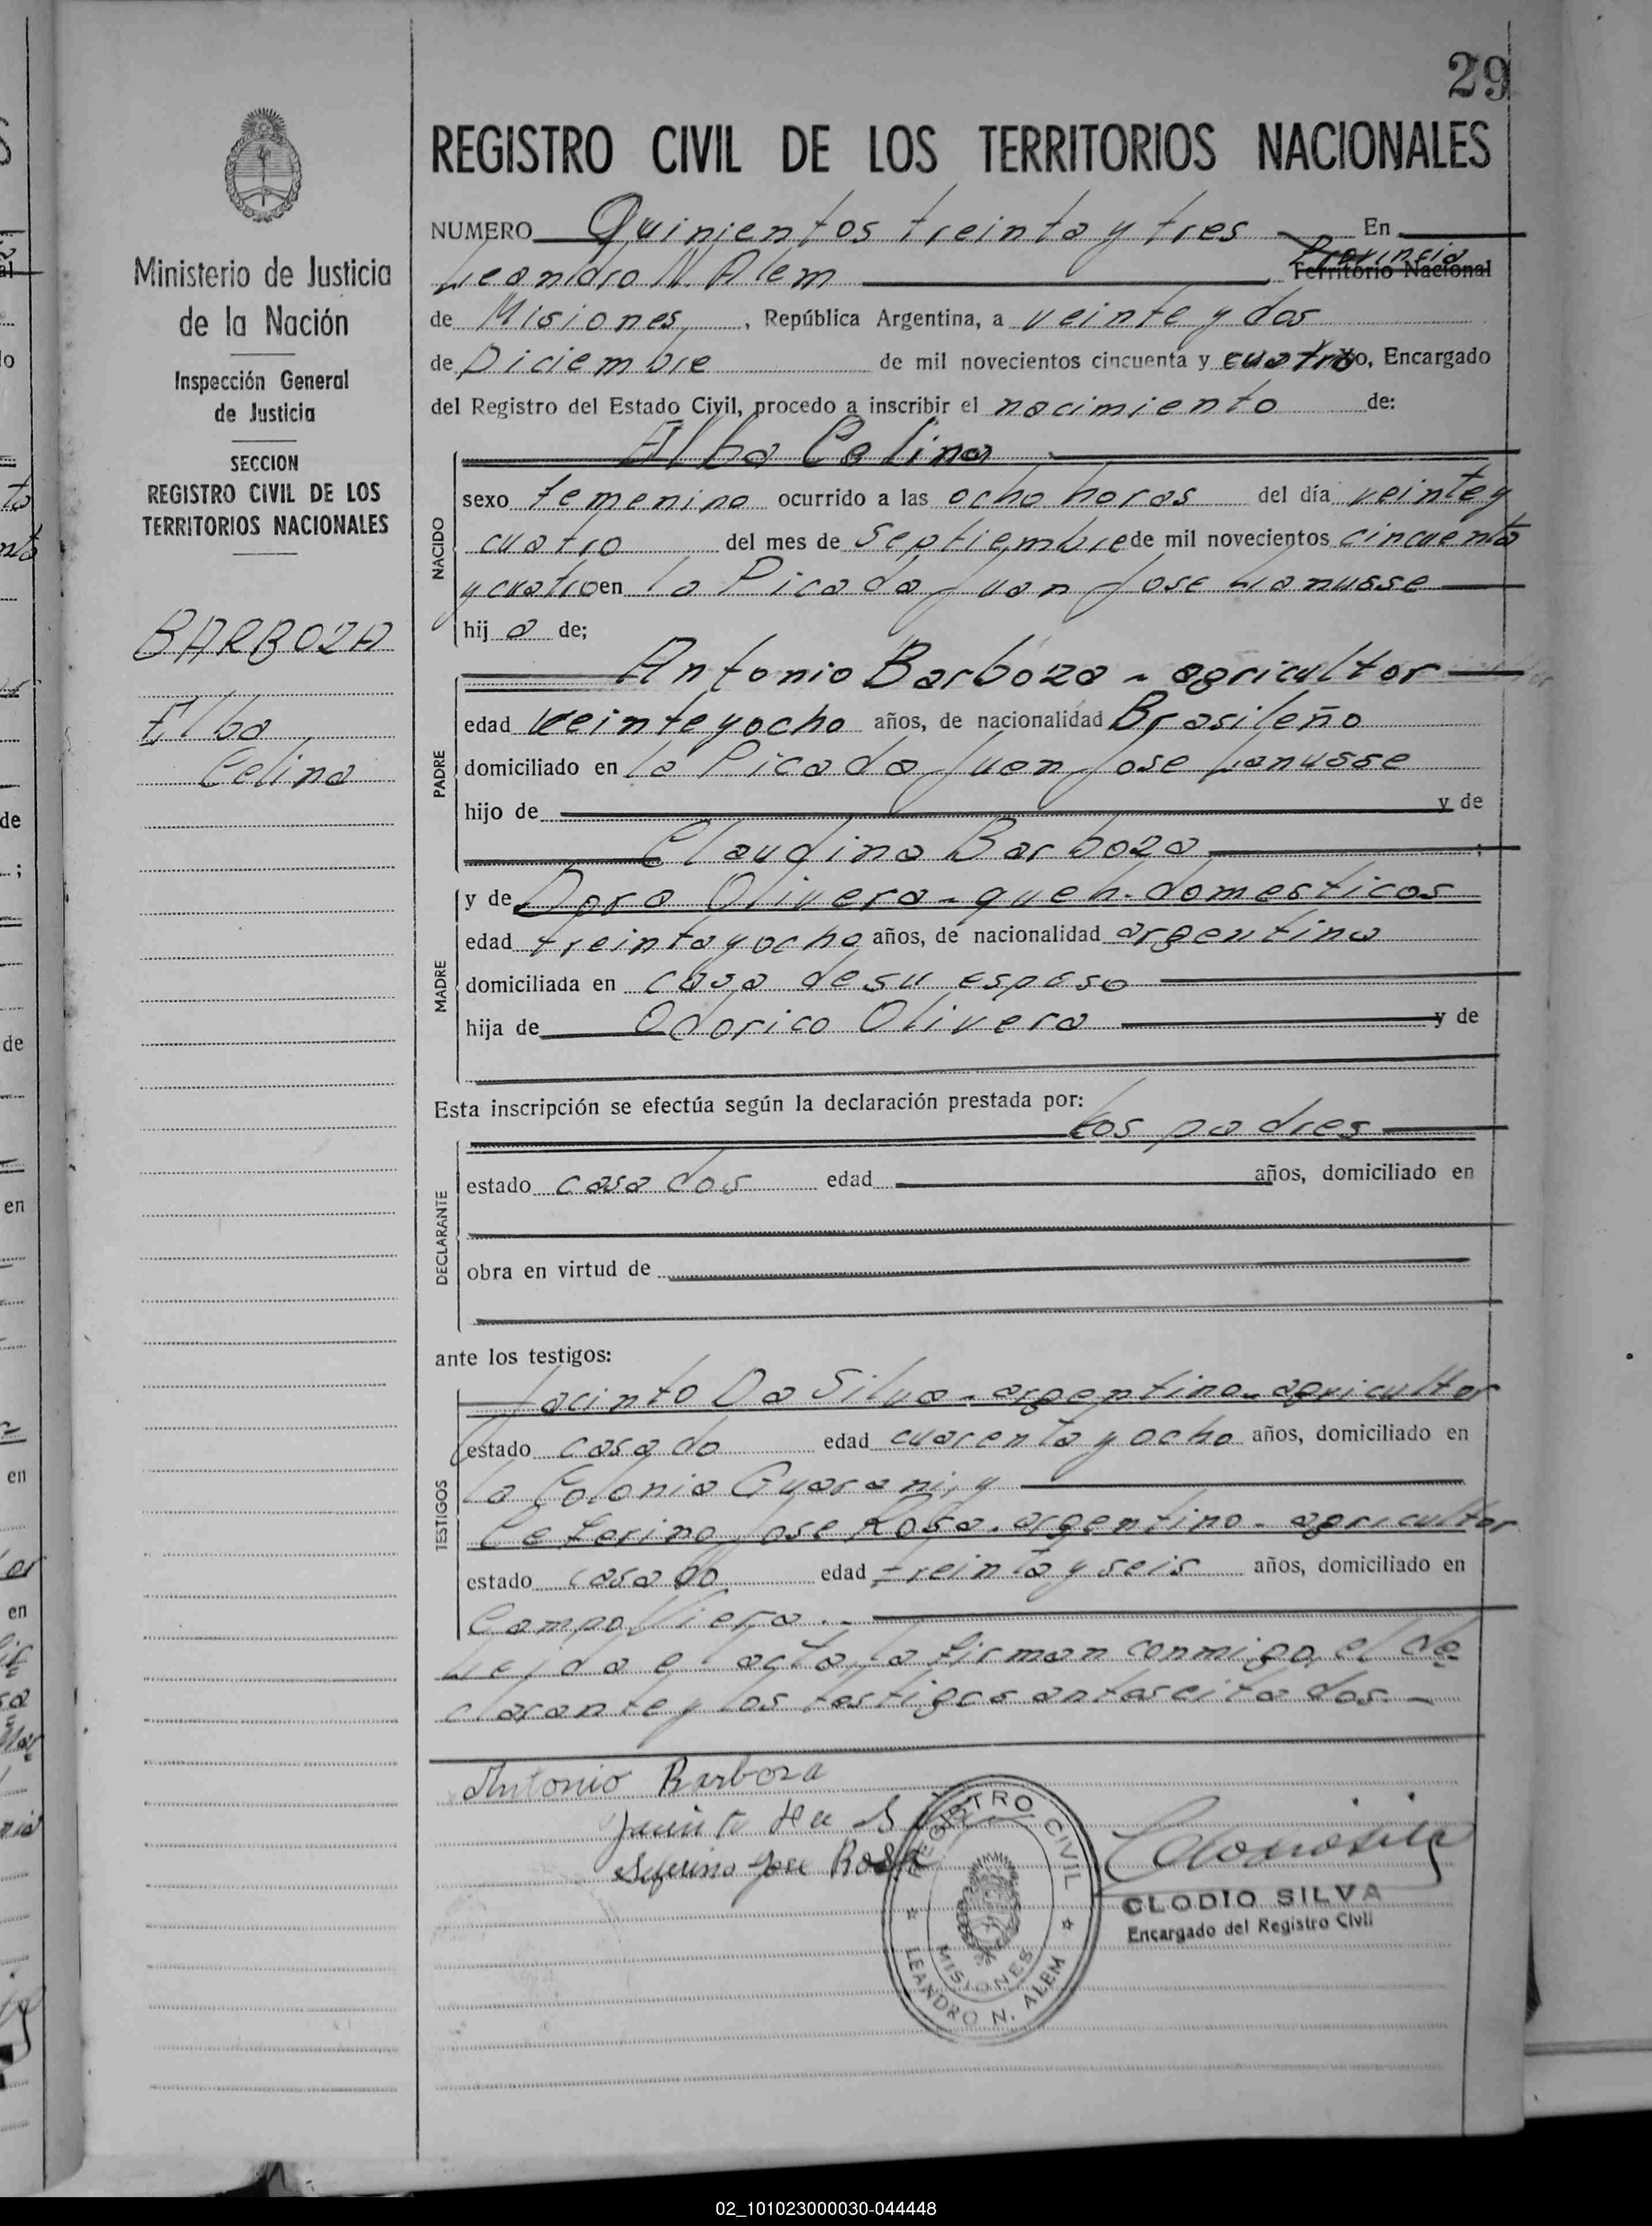 29
REGISTRO CIVIL DE LOS TERRITORIOS NACIONALES
Ministerio de Justicia
de la Nación
Inspección General
de Justicia
SECCION
REGISTRO CIVIL DE LOS
TERRITORIOS NACIONALES
BARBOZA
Elba
Celina
NUMERO Quinientos treinta y tres En
Leandro N. Alem Provincia Territorio Nacional
de Misiones, República Argentina, a veinte y dos
de Diciembre de mil novecientos cincuenta y cuatro Yo, Encargado
del Registro del Estado Civil, procedo a inscribir el nacimiento de:
NACIDO
Elba Celina
sexo femenino ocurrido a las ocho horas del día veinte y
cuatro del mes de Septiembre de mil novecientos cincuenta
y cuatro en la Picada Juan Jose Lanusse
hij a de;
PADRE
Antonio Barboza - agricultor
edad veinte y ocho años, de nacionalidad Brasileño
domiciliado en la Picada Juan Jose Lanusse
hijo de y de
Claudina Barboza ;
MADRE
y de Dora Olivera - queh. domesticos
edad treinta y ocho años, de nacionalidad argentina
domiciliada en casa de su esposo
hija de Odorico Olivera y de
Esta inscripción se efectúa según la declaración prestada por:
DECLARANTE
los padres
estado casados edad años, domiciliado en
obra en virtud de
ante los testigos:
TESTIGOS
Jacinto Da Silva - argentino - agricultor
estado casado edad cuarenta y ocho años, domiciliado en
la Colonia Guarani, y
Ceferino Jose Rosa. argentino - agricultor
estado casado edad treinta y seis años, domiciliado en
Campo Viera. -
Leida el acta, la firman conmigo, el de
clarante y los testigos antes citados. -
Antonio Barboza
Jacinto da S
Seferino Jose Rosa
REGISTRO CIVIL
MISIONES
LEANDRO N. ALEM
CLODIO SILVA
Encargado del Registro Civil
02_101023000030-044448